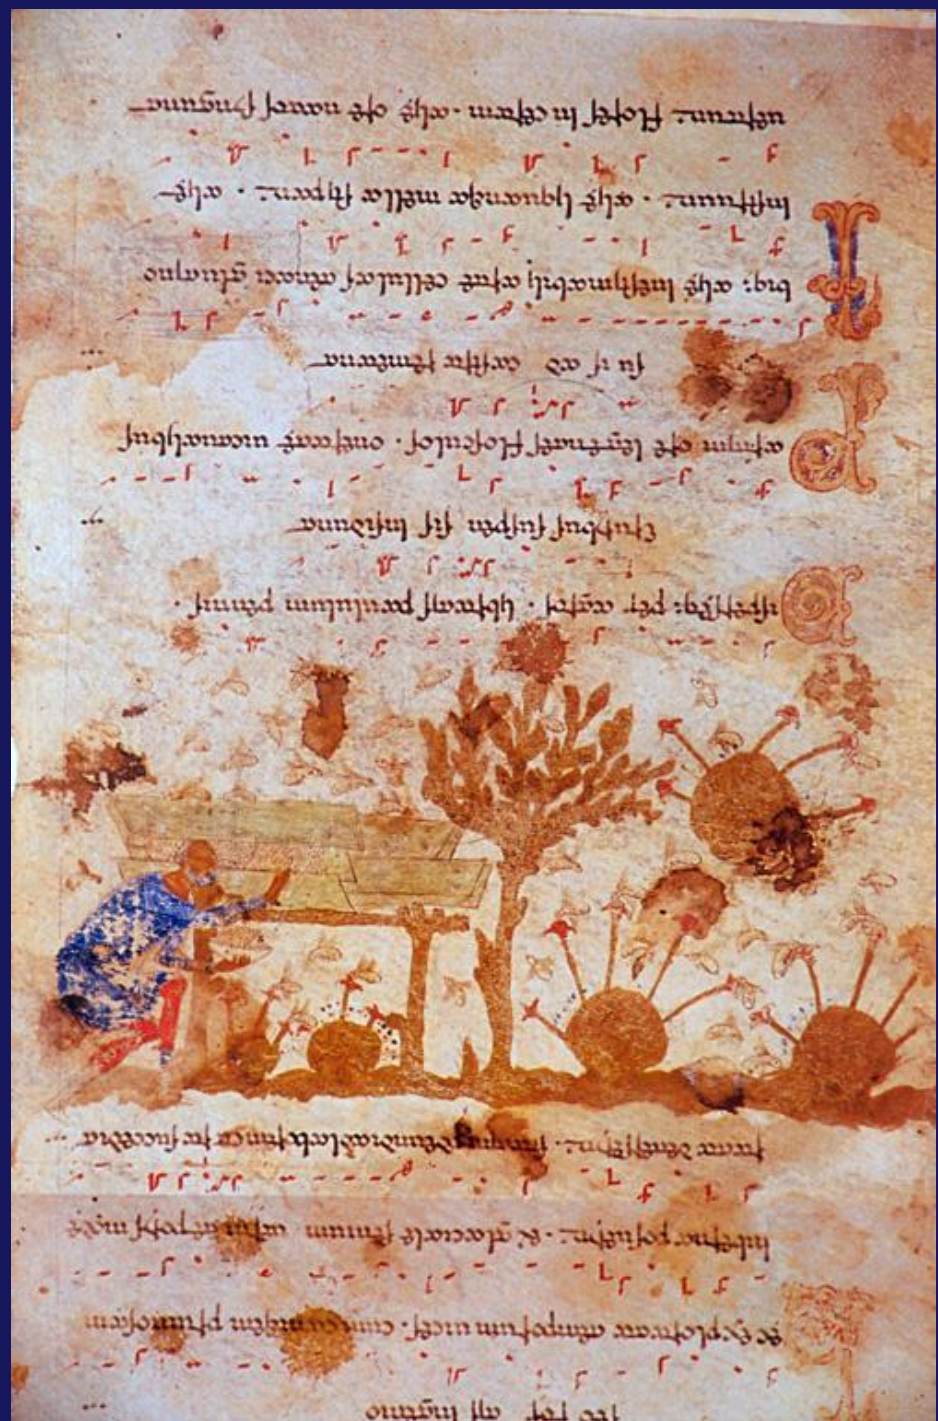 ingenio
hec explorata temporum uice· cum canitiem pruinosam
hiberna posuerint· & glaciale senium uerni temporis mode
rata deterserint· statim prodeundi ad laborem cura succedit
Dispersęq: per agros· libratis paululum pennis·
cruribus suspensis insidunt
Partim ore legentes flosculos· oneratis uictualibus
suis ad castra remeant
Ibiq: alię inestimabili arte cellulas tenaci glutino
instruunt· alię liquantia mella stipant· alię
uertunt flores in ceram· alię ore natos fingunt